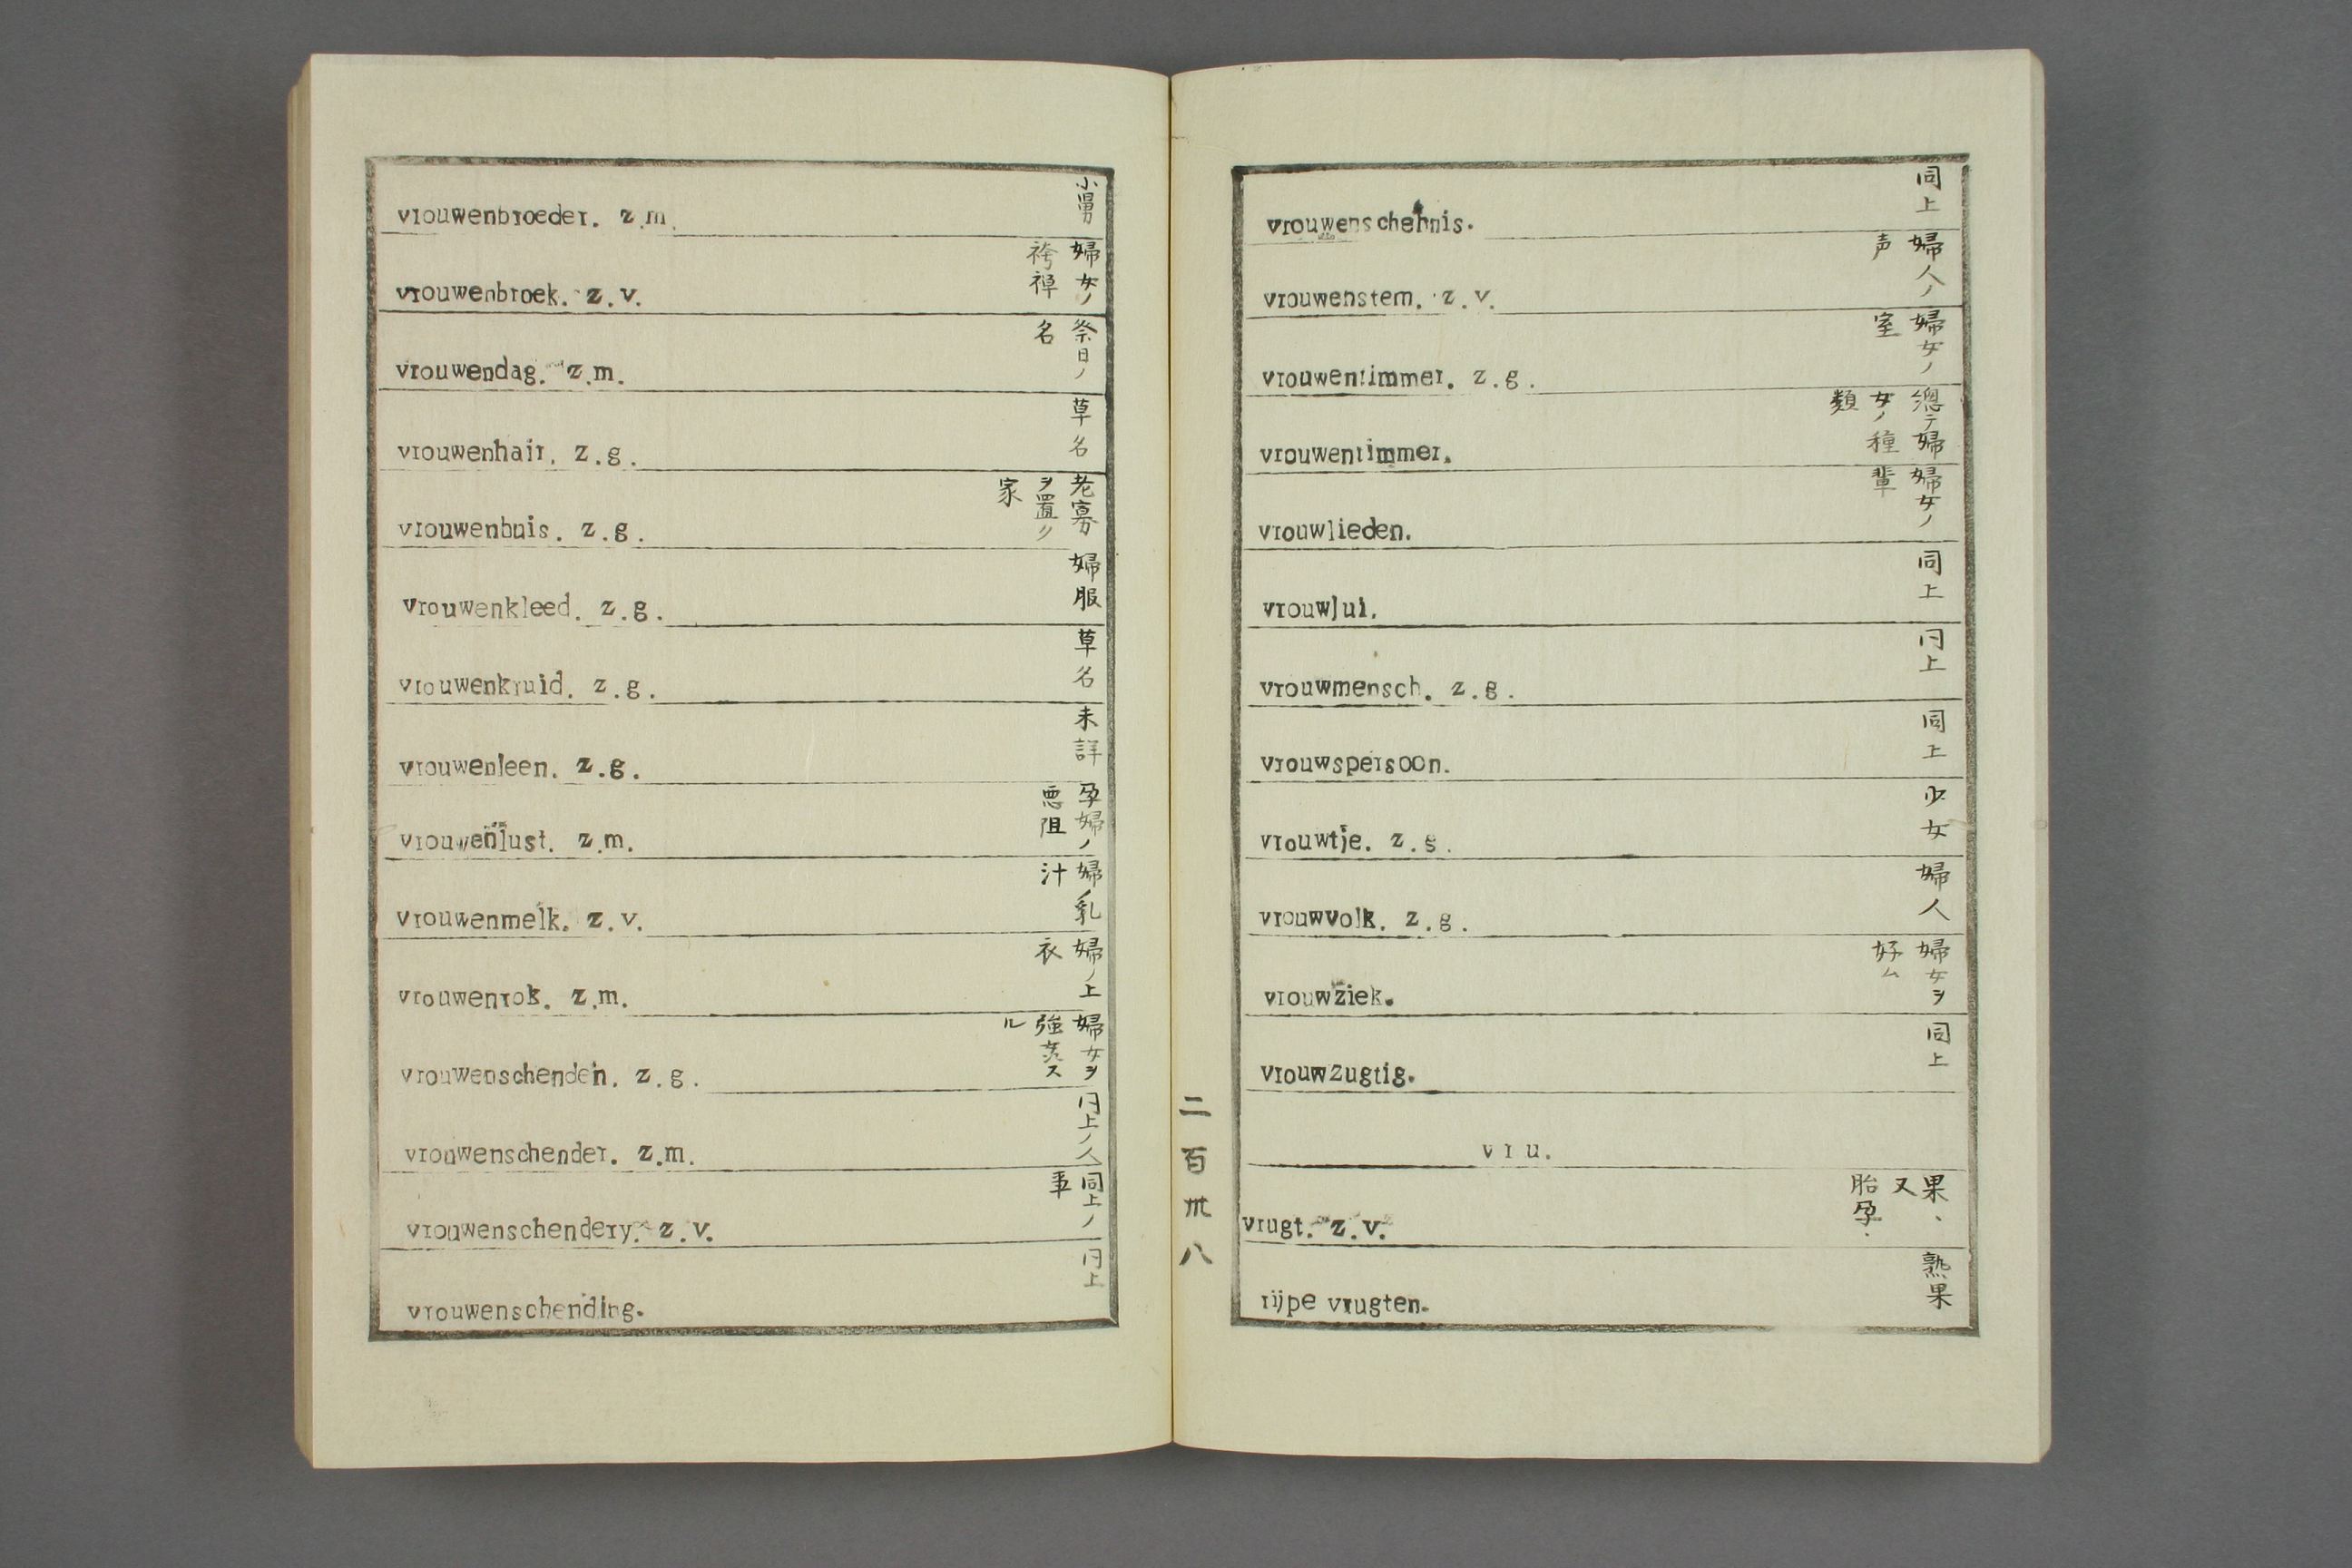 vrouwenbroeder. z.m. 小舅
vrouwenbroek. z.v. 婦女ノ袴褌
vrouwendag. z.m. 祭日ノ名
vrouwenhair. z.g. 草名
vrouwenhuis. z.g. 老寡ヲ置ク家
vrouwenkleed. z.g. 婦服
vrouwenkruid. z.g. 草名
vrouwenleen. z.g. 未詳
vrouwenlust. z.m. 孕婦ノ悪阻
vrouwenmelk. z.v. 婦乳汁
vrouwenrok. z.m. 婦ノ上衣
vrouwenschenden. z.g. 婦女ヲ強婬スル
vrouwenschender. z.m. 仝上ノ人
vrouwenschendery. z.v. 同上ノ事
vrouwenschending. 同上
二百卅八
vrouwenschennis. 同上
vrouwenstem. z.v. 婦人ノ声
vrouwentimmer. z.g. 婦女ノ室
vrouwentimmer. 總テ婦女ノ種類
vrouwlieden. 婦女ノ輩
vrouwlui. 同上
vrouwmensch. z.g. 同上
vrouwspersoon. 同上
vrouwtje. z.g. 少女
vrouwvolk. z.g. 婦人
vrouwziek. 婦女ヲ好ム
vrouwzugtig. 同上
vru.
vrugt. z.v. 果、又胎孕.
rijpe vrugten. 熟果